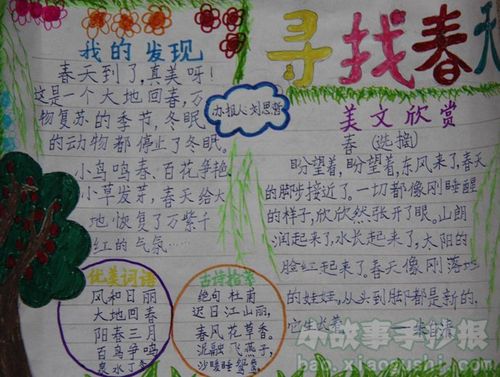 寻找春天
我的发现
春天到了,真美呀!
这是一个大地回春,万
物复苏的季节,冬眠
的动物都停止了冬眠。
小鸟鸣春、百花争艳、
小草发芽,春天给大
地恢复了万紫千
红的气氛……
办报人:刘思哲
美文欣赏
春(选摘)
盼望着,盼望着,东风来了,春天
的脚步接近了。一切都像刚睡醒
的样子,欣欣然张开了眼。山朗
润起来了,水长起来了,太阳的
脸红起来了。春天像刚落地
的娃娃,从头到脚都是新的,
它生长着。——朱自清
优美词语
风和日丽
大地回春
阳春三月
百鸟争鸣
泉水丁冬
古诗摘萃
绝句 杜甫
迟日江山丽,
春风花草香。
泥融飞燕子,
沙暖睡鸳鸯。
小故事手抄报
bao.xiaogushi.com